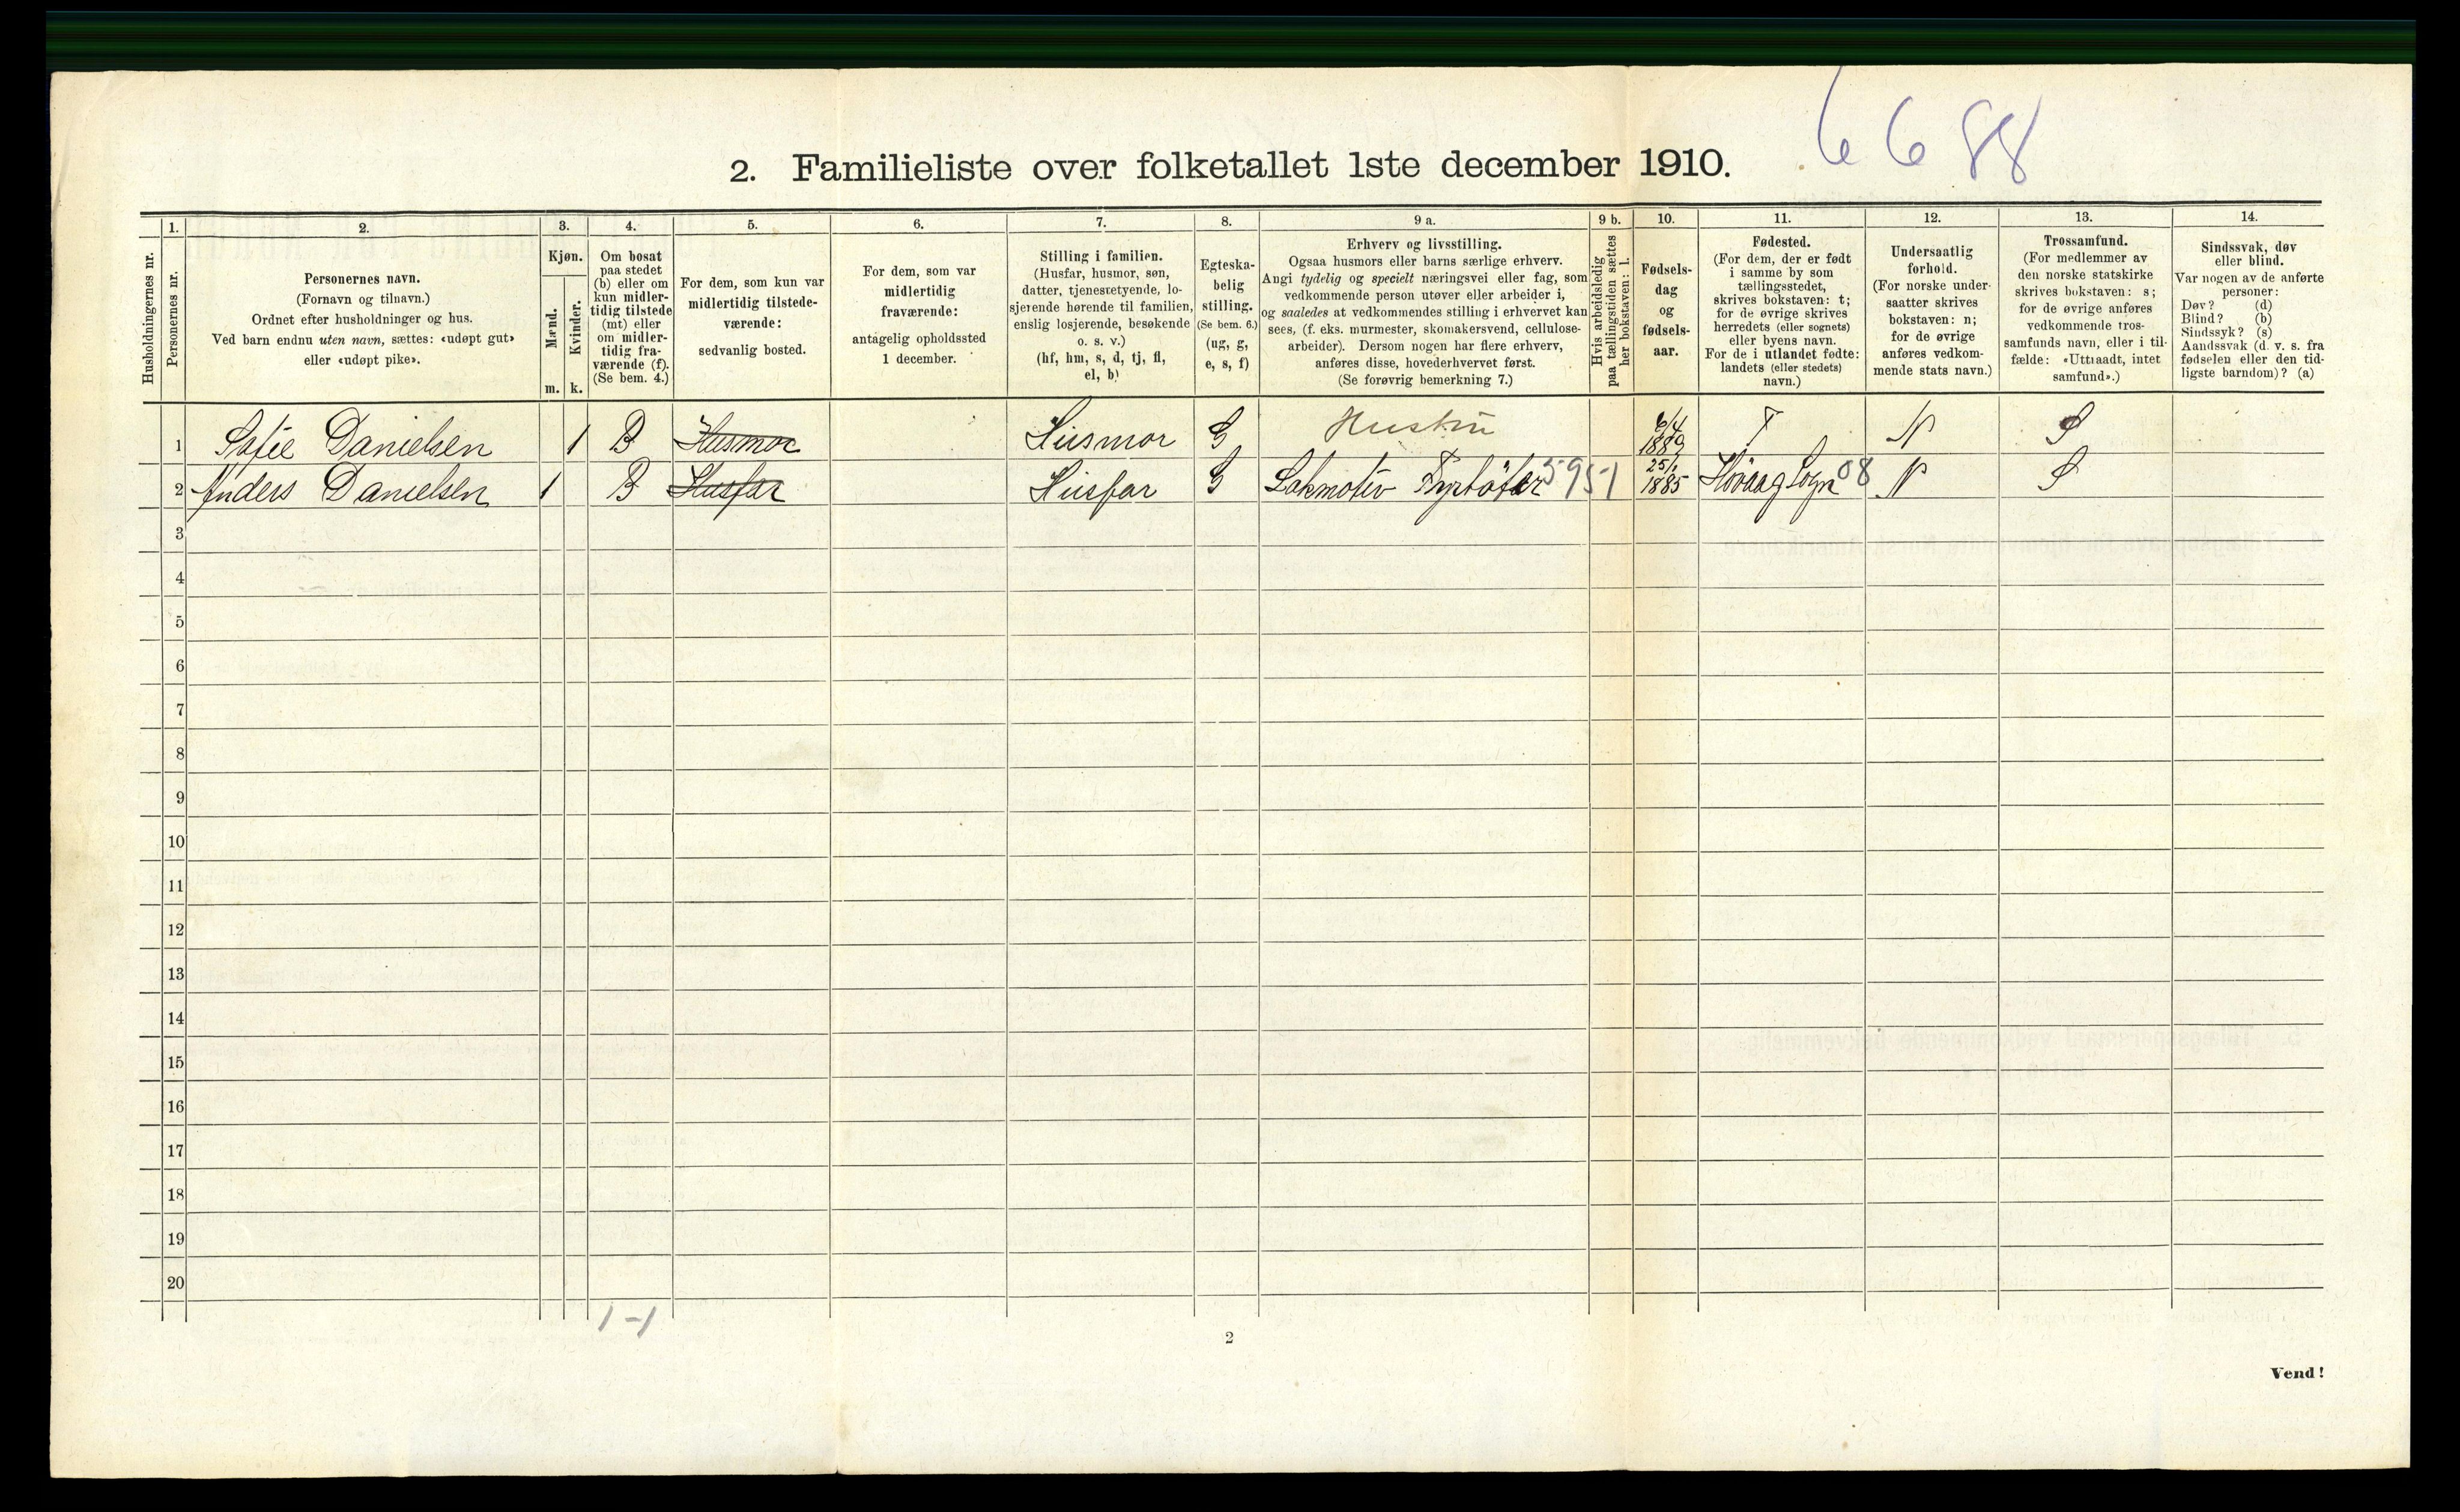 6688
2. Familieliste over folketallet 1ste december 1910.
Husholdningernes nr.
1.
Personernes nr.
2.
Personernes navn.
(Fornavn og tilnavn.)
Ordnet efter husholdninger og hus.
Ved barn endnu uten navn, sættes: «udøpt gut»
eller «udøpt pike».
3.
Kjøn.
Mænd.
Kvinder.
m. k.
4.
Om bosat
paa stedet
(b) eller om
kun midler-
tidig tilstede
(mt) eller
om midler-
tidig fra-
værende (f).
(Se bem. 4.)
5.
For dem, som kun var
midlertidig tilstede-
værende:
sedvanlig bosted.
6.
For dem, som var
midlertidig
fraværende:
antagelig opholdssted
1 december.
7.
Stilling i familien.
(Husfar, husmor, søn,
datter, tjenestetyende, lo-
sjerende hørende til familien,
enslig losjerende, besøkende
o. s. v.)
(hf, hm, s, d, tj, fl,
el, b)
8.
Egteska-
belig
stilling.
(Se bem. 6.)
(ug, g,
e, s, f)
9 a.
Erhverv og livsstilling.
Ogsaa husmors eller barns særlige erhverv.
Angi tydelig og specielt næringsvei eller fag, som
vedkommende person utøver eller arbeider i,
og saaledes at vedkommendes stilling i erhvervet kan
sees, (f. eks. murmester, skomakersvend, cellulose-
arbeider). Dersom nogen har flere erhverv,
anføres disse, hovederhvervet først.
(Se forøvrig bemerkning 7.)
9 b.
Hvis arbeidsledig
paa tællingstiden sættes
her bokstaven: l.
10.
Fødsels-
dag
og
fødsels-
aar.
11.
Fødested.
(For dem, der er født
i samme by som
tællingsstedet,
skrives bokstaven: t;
for de øvrige skrives
herredets (eller sognets)
eller byens navn.
For de i utlandet fødte:
landets (eller stedets)
navn.)
12.
Undersaatlig
forhold.
(For norske under-
saatter skrives
bokstaven: n;
for de øvrige
anføres vedkom-
mende stats navn.)
13.
Trossamfund.
(For medlemmer av
den norske statskirke
skrives bokstaven: s;
for de øvrige anføres
vedkommende tros-
samfunds navn, eller i til-
fælde: «Uttraadt, intet
samfund».)
14.
Sindssvak, døv
eller blind.
Var nogen av de anførte
personer:
Døv? (d)
Blind? (b)
Sindssyk? (s)
Aandssvak (d. v. s. fra
fødselen eller den tid-
ligste barndom)? (a)
1 Sofie Danielsen 1 B Husmor Husmor G Hustru 6/4 1889 T N S
2 Anders Danielsen 1 B Husfar Husfar G Lokmotiv Fyrbøter 5951 25/1 1885 Høvaag Sogn 08 N S
3
4
5
6
7
8
9
10
11
12
13
14
15
16
17
18
19
20
1-1
2
Vend!